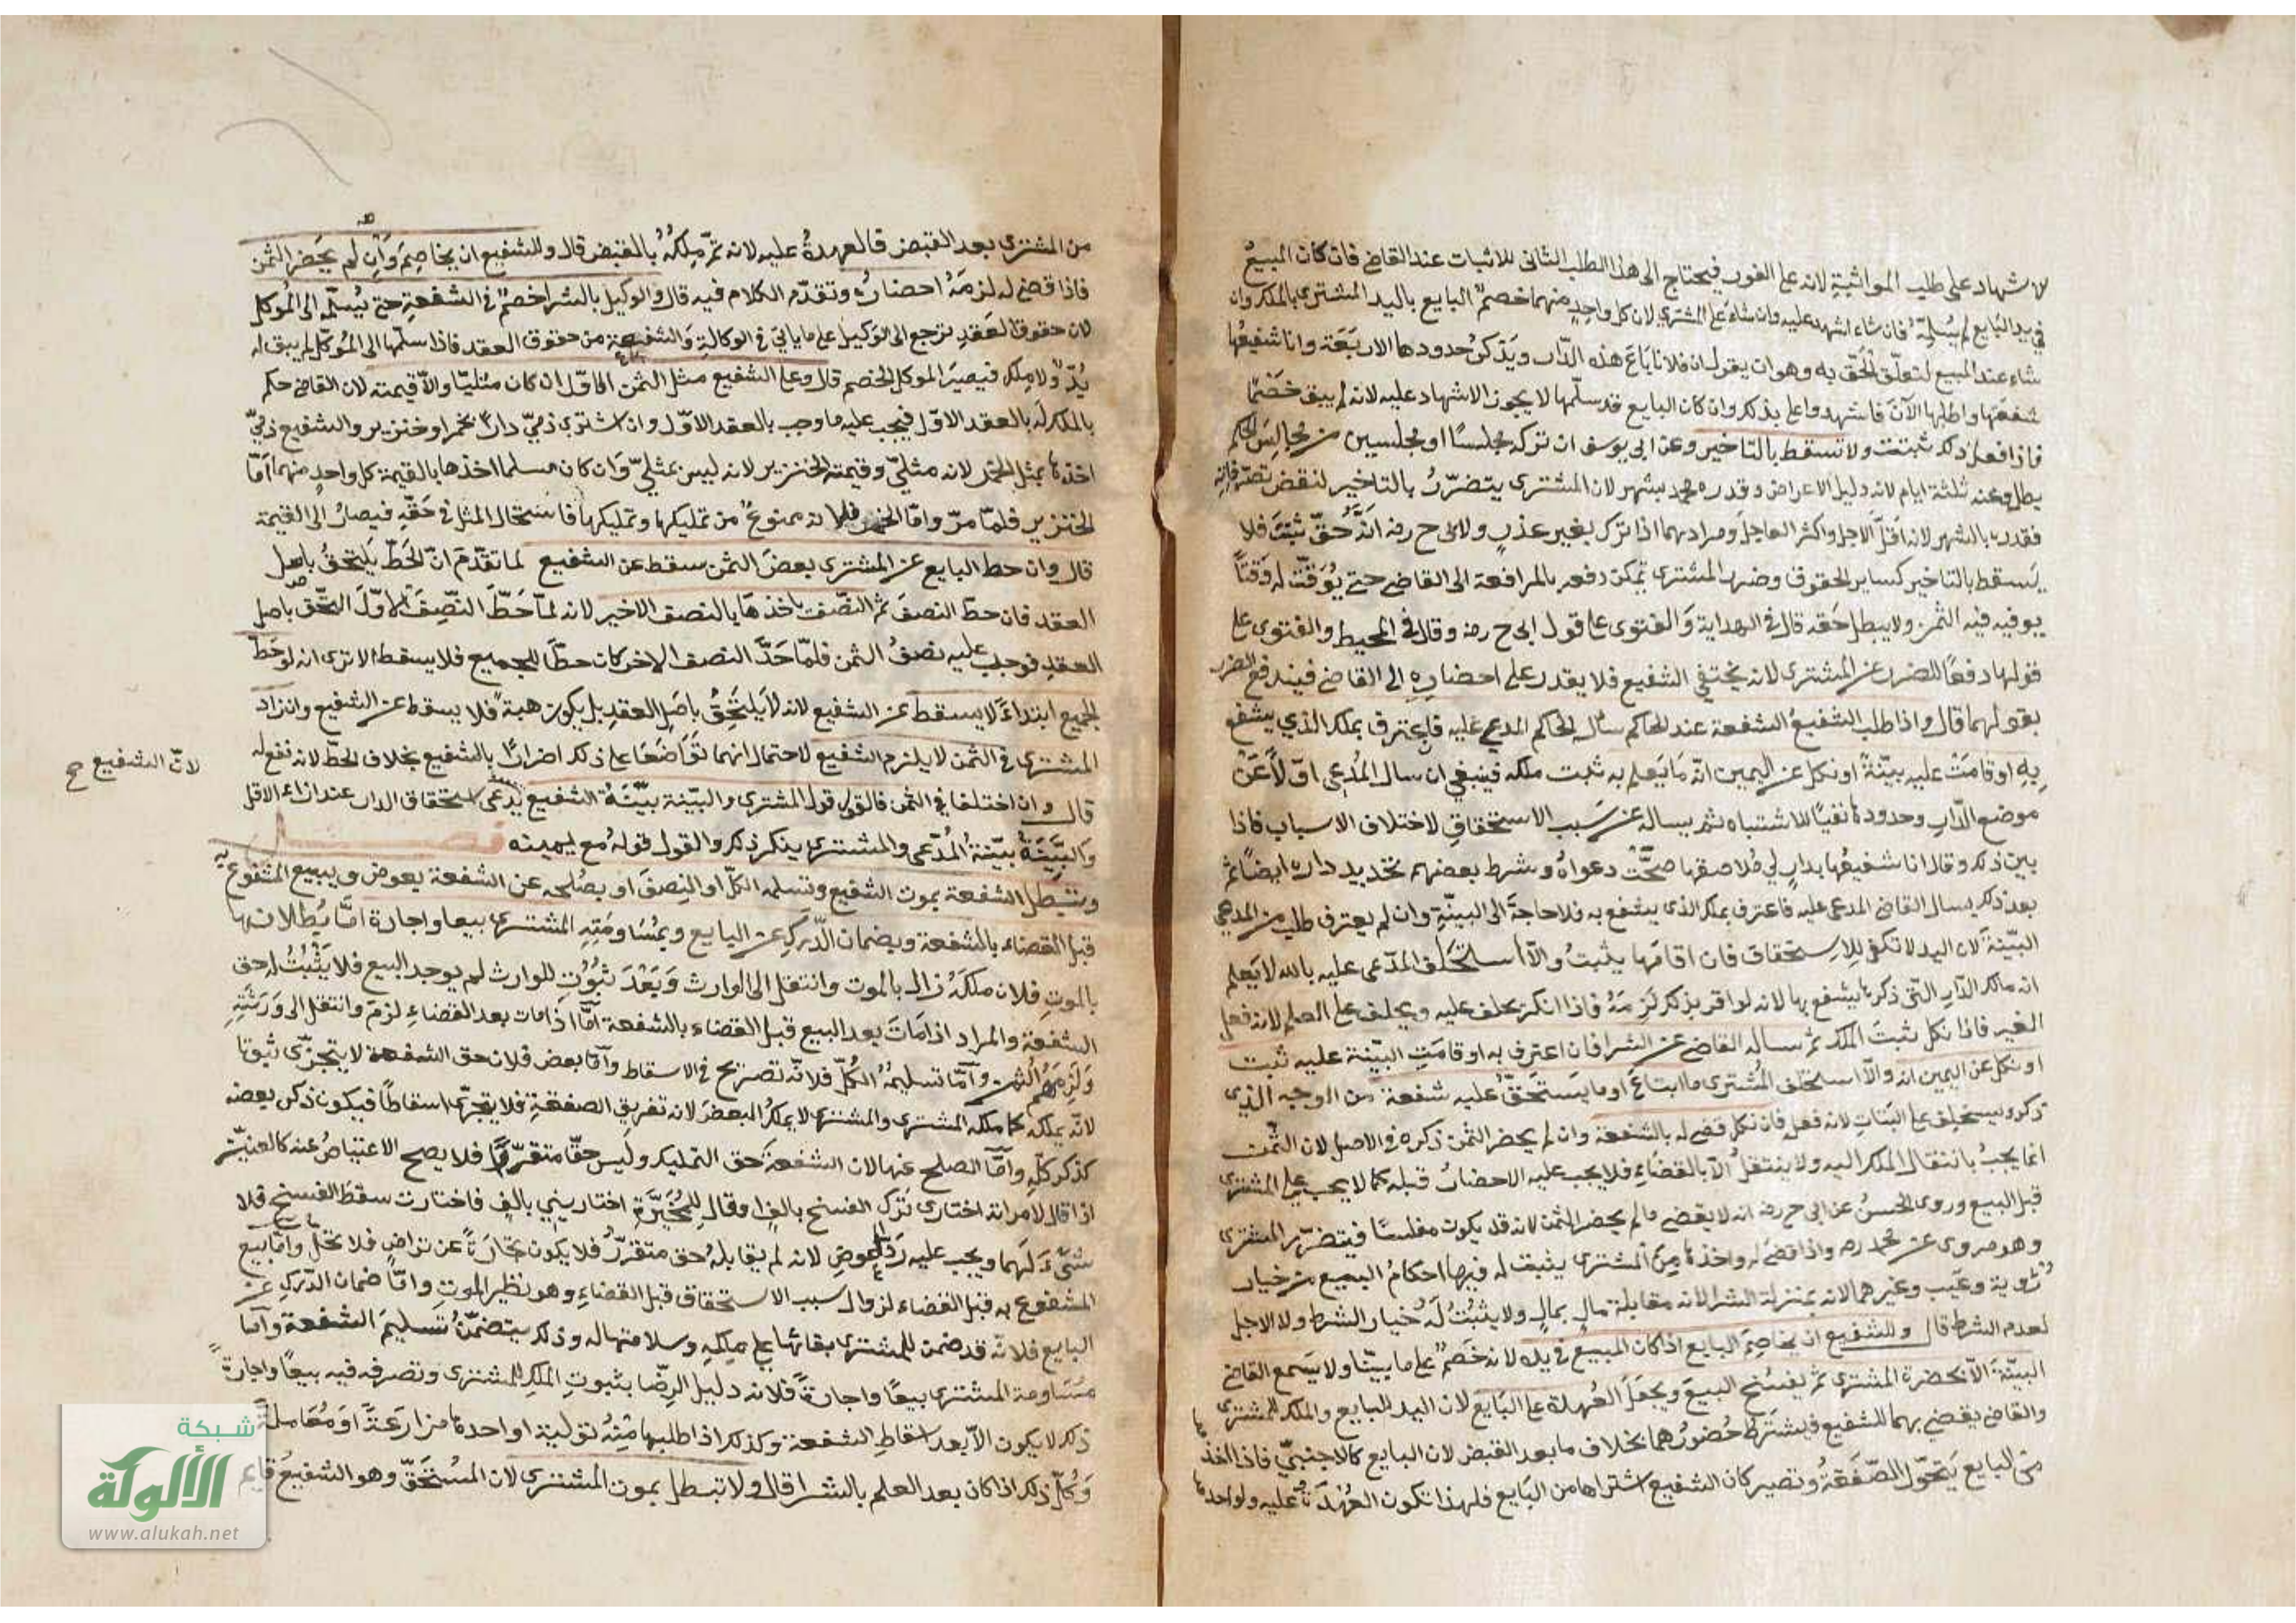 الاشهاد على طلب المواثبة لانه على الفور فيحتاج الى هذا الطلب الثاني للاثبات عند القاضي فان كان المبيع
في يد البايع لم يسلمه فان شاء اشهد عليه وان شاء على المشتري لان كل واحد منهما خصم البايع باليد المشتري بالملك وان
شاء عند المبيع لتعلق الحق به وهو ان يقول ان فلانا باع هذه الدار ويذكر حدودها الاربعة وانا شفيعها
شفعتها واطلبها الآن فاشهدوا على بذلك وان كان البايع قد سلمها لا يجوز الاشهاد عليه لانه لم يبق خصما
فاذا فعل ذلك ثبتت ولا تسقط بالتاخير وعن ابي يوسف ان تركه مجلسا او مجلسين من مجالس الحاكم
بطل وعنه ثلثة ايام لانه دليل الاعراض وقدره محمد بشهر لان المشتري يتضرر بالتاخير لنقض تصرفاته
فقدره بالشهر لانه اقل الاجل واكثر العاجل ومرادهما اذا ترك بغير عذر ولابي ح رضه انه حق ثبت فلا
يسقط بالتاخير كساير الحقوق وضرر المشتري يمكن دفعه بالمرافعة الى القاضي حتى يوقت له وقتا
يوفيه فيه الثمن ولا يبطل حقه قال في الهداية والفتوى على قول ابي ح رضه وقال في المحيط والفتوى على
قولهما دفعا للضرر عن المشتري لانه يختفي الشفيع فلا يقدر على احضاره الى القاضي فيندفع الضرر
بقولهما قال واذا طلب الشفيع الشفعة عند الحاكم سأل الحاكم المدعى عليه فان اعترف بملكه الذي يشفع
به او قامت عليه بينة او نكل عن اليمين انه ما يعلم به ثبت ملكه فينبغي ان يسال المدعي اولا عن
موضع الدار وحدودها نفيا للاشتباه ثم يساله عن سبب الاستحقاق لاختلاف الاسباب فاذا
بين ذلك وقال انا شفيعها بدار لي تلاصقها صحت دعواه وشرط بعضهم تحديد داره ايضا ثم
بعد ذلك يسال القاضي المدعى عليه فاعترف بملك الذي يشفع به فلا حاجة الى البينة وان لم يعترف طلب من المدعي
البينة لان اليد لا تكفي للاستحقاق فان اقامها يثبت والا استحلف المدعى عليه بالله لا يعلم
انه مالك الدار التي ذكرها يشفع بها لانه لو اقر بذلك لزمه فاذا انكر يحلف عليه ويحلف على العلم لانه فعل
الغير فاذا نكل ثبت الملك ثم ساله القاضي عن الشرا فان اعترف به او قامت البينة عليه ثبت
او نكل عن اليمين انه والا استحلف المشتري ما ابتاع او ما يستحق عليه شفعة من الوجه الذي
ذكره ويستحلف على البتات لانه فعله فان نكل قضي له بالشفعة وان لم يحضر الثمن ذكره في الاصل لان الثمن
انما يجب بانتقال الملك اليه ولا ينتقل الا بالقضاء فلا يجب عليه الاحضار قبله كما لا يجب على المشتري
قبل البيع وروى الحسن عن ابي ح رضه انه لا يقضي ما لم يحضر الثمن لانه قد يكون مفلسا فيتضرر المشتري
وهو مروي عن محمد رحه واذا قضي له واخذها من المشتري يثبت له فيها احكام البيع من خيار
رؤية وعيب وغيرهما لانه بمنزلة الشرا لانه مقابلة مال بمال ولا يثبت له خيار الشرط ولا الاجل
لعدم الشرط قال وللشفيع ان يخاصم البايع اذا كان المبيع في يده لانه خصم على ما بينا ولا يسمع القاضي
البينة الا بحضرة المشتري ثم يفسخ البيع ويجعل العهدة على البايع لان اليد للبايع والملك للمشتري
والقاضي يقضي بهما للشفيع فيشترط حضورهما بخلاف ما بعد القبض لان البايع كالاجنبي فاذا اخذها
من البايع يتحول الصفقة وتصير كان الشفيع اشتراها من البايع فلهذا تكون العهدة عليه ولو اخذها
من المشتري بعد القبض فالعهدة عليه لانه تم ملكه بالقبض قال وللشفيع ان يخاصم وان لم يحضر الثمن
فاذا قضي له لزمه احضاره وتقدم الكلام فيه قال والوكيل بالشرا خصم في الشفعة حتى يسلمه الى الموكل
لان حقوق العقد ترجع الى الوكيل على ما ياتي في الوكالة والشفعة من حقوق العقد فاذا سلمها الى الموكل لم يبق له
يد ولا ملك فيصير الموكل الخصم قال وعلى الشفيع مثل الثمن الاول ان كان مثليا والا قيمته لان القاضي حكم
بالملك له بالعقد الاول فيجب عليه ما وجب بالعقد الاول وان اشترى ذمي دارا بخمر او خنزير والشفيع ذمي
اخذها بمثل الخمر لانه مثلي وقيمته الخنزير لانه ليس بمثلي وان كان مسلما اخذها بالقيمة كل واحد منهما اما
الخنزير فلما مر واما الخمر فلانه ممنوع من تمليكها وتملكها فاستحال المثل في حقه فيصار الى القيمة
قال وان حط البايع عن المشتري بعض الثمن سقط عن الشفيع لما تقدم ان الحط يلتحق باصل
العقد فان حط النصف ثم النصف ياخذها بالنصف الاخير لانه لما حط النصف الاول التحق باصل
العقد فوجب عليه نصف الثمن فلما حط النصف الاخر كان حطا للجميع فلا يسقط الا ترى انه لو حط
الجميع ابتداء لا يسقط عن الشفيع لانه لا يلتحق باصل العقد بل يكون هبة فلا يسقط عن الشفيع وان زاد
المشتري في الثمن لا يلزم الشفيع لاحتمال انهما تواضعا على ذلك اضرارا بالشفيع بخلاف الحط لانه نفع له
قال وان اختلفا في الثمن فالقول قول المشتري والبينة بينة الشفيع يدعى استحقاق الدار عند اداء الاقل
لان الشفيع صح
والبينة بينة المدعي والمشتري ينكر ذلك والقول قوله مع يمينه فصل
وتبطل الشفعة بموت الشفيع وتسليمه الكل او النصف او بصلحه عن الشفعة بعوض وببيع المشفوع به
قبل القضاء بالشفعة وبضمان الدرك عن البايع وبمساومته المشتري بيعا واجارة اما بطلانها
بالموت فلان ملكه زال بالموت وانتقل الى الوارث وبعد ثبوته للوارث لم يوجد البيع فلا يثبت له حق
الشفعة والمراد اذا مات بعد البيع قبل القضاء بالشفعة اما اذا مات بعد القضاء لزم وانتقل الى ورثته
ولزمهم الثمن واما تسليمه الكل فلانه تصريح في الاسقاط واما بعض فلان حق الشفعة لا يتجزى ثبوتا
لانه يملكه كما ملكه المشتري والمشتري لا يملك البعض لانه تفريق الصفقة فلا يتجزى اسقاطا فيكون ذكر بعضه
كذكر كله واما الصلح عنها لان الشفعة حق التمليك وليس حقا متقررا فلا يصح الاعتياض عنه كالعنين
اذا قال لامراته اختاري ترك الفسخ بالف او قال للمخيرة اختاريني بالف فاختارت سقط الفسخ فلا
شيء لهما ويجب عليه رد العوض لانه لم يقابله حق متقرر فلا يكون تجارة عن تراض فلا تحل واما بيع
المشفوع به قبل القضاء لزوال سبب الاستحقاق قبل القضاء وهو نظير الموت واما ضمان الدرك عن
البايع فلانه قد ضمن للمشتري بقائها على ملكه وسلامتها له وذلك يتضمن تسليم الشفعة واما
مساومة المشتري بيعا واجارة فلانه دليل الرضا بثبوت الملك للمشتري وتصرفه فيه بيعا واجارة
ذلك لا يكون الا بعد اسقاط الشفعة وكذلك اذا طلبها منه تولية او اخذها مزارعة او معاملة
وكل ذلك اذا كان بعد العلم بالشرا قال ولا تبطل بموت المشتري لان المستحق وهو الشفيع قايم
شبكة
الألوكة
www.alukah.net